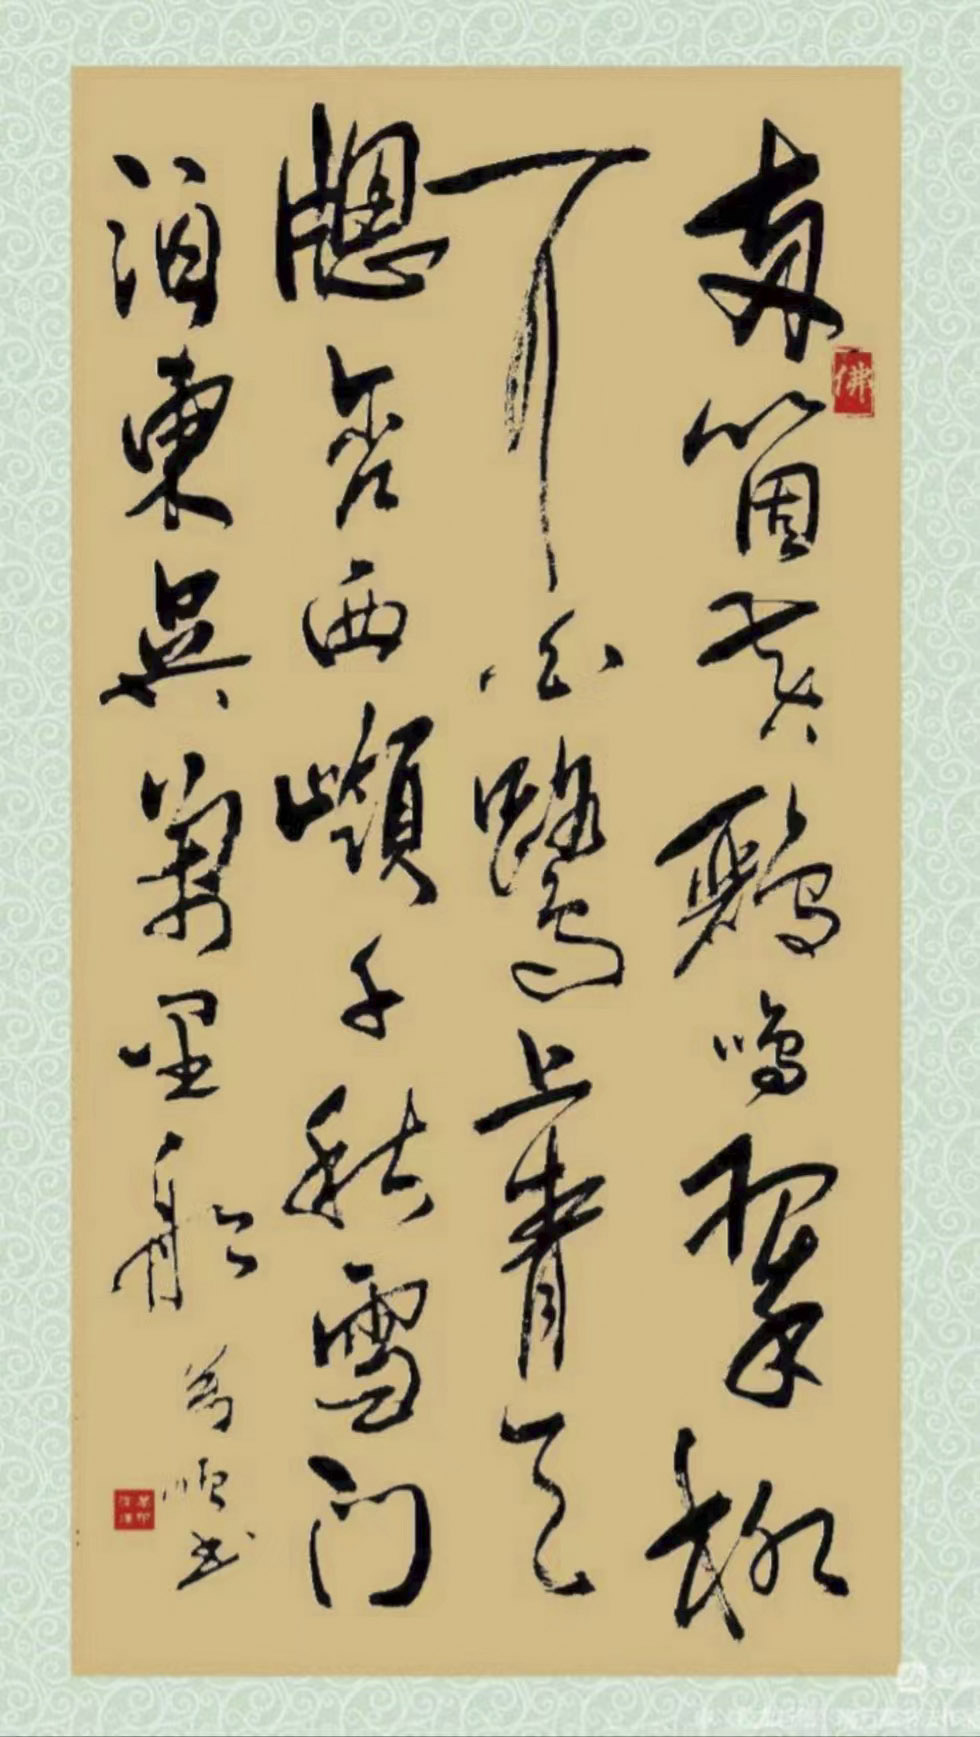 两箇黄鸝鳴翠柳一
行白鷺上青天
窗含西嶺千秋雪門
泊東吳萬里船
書
佛